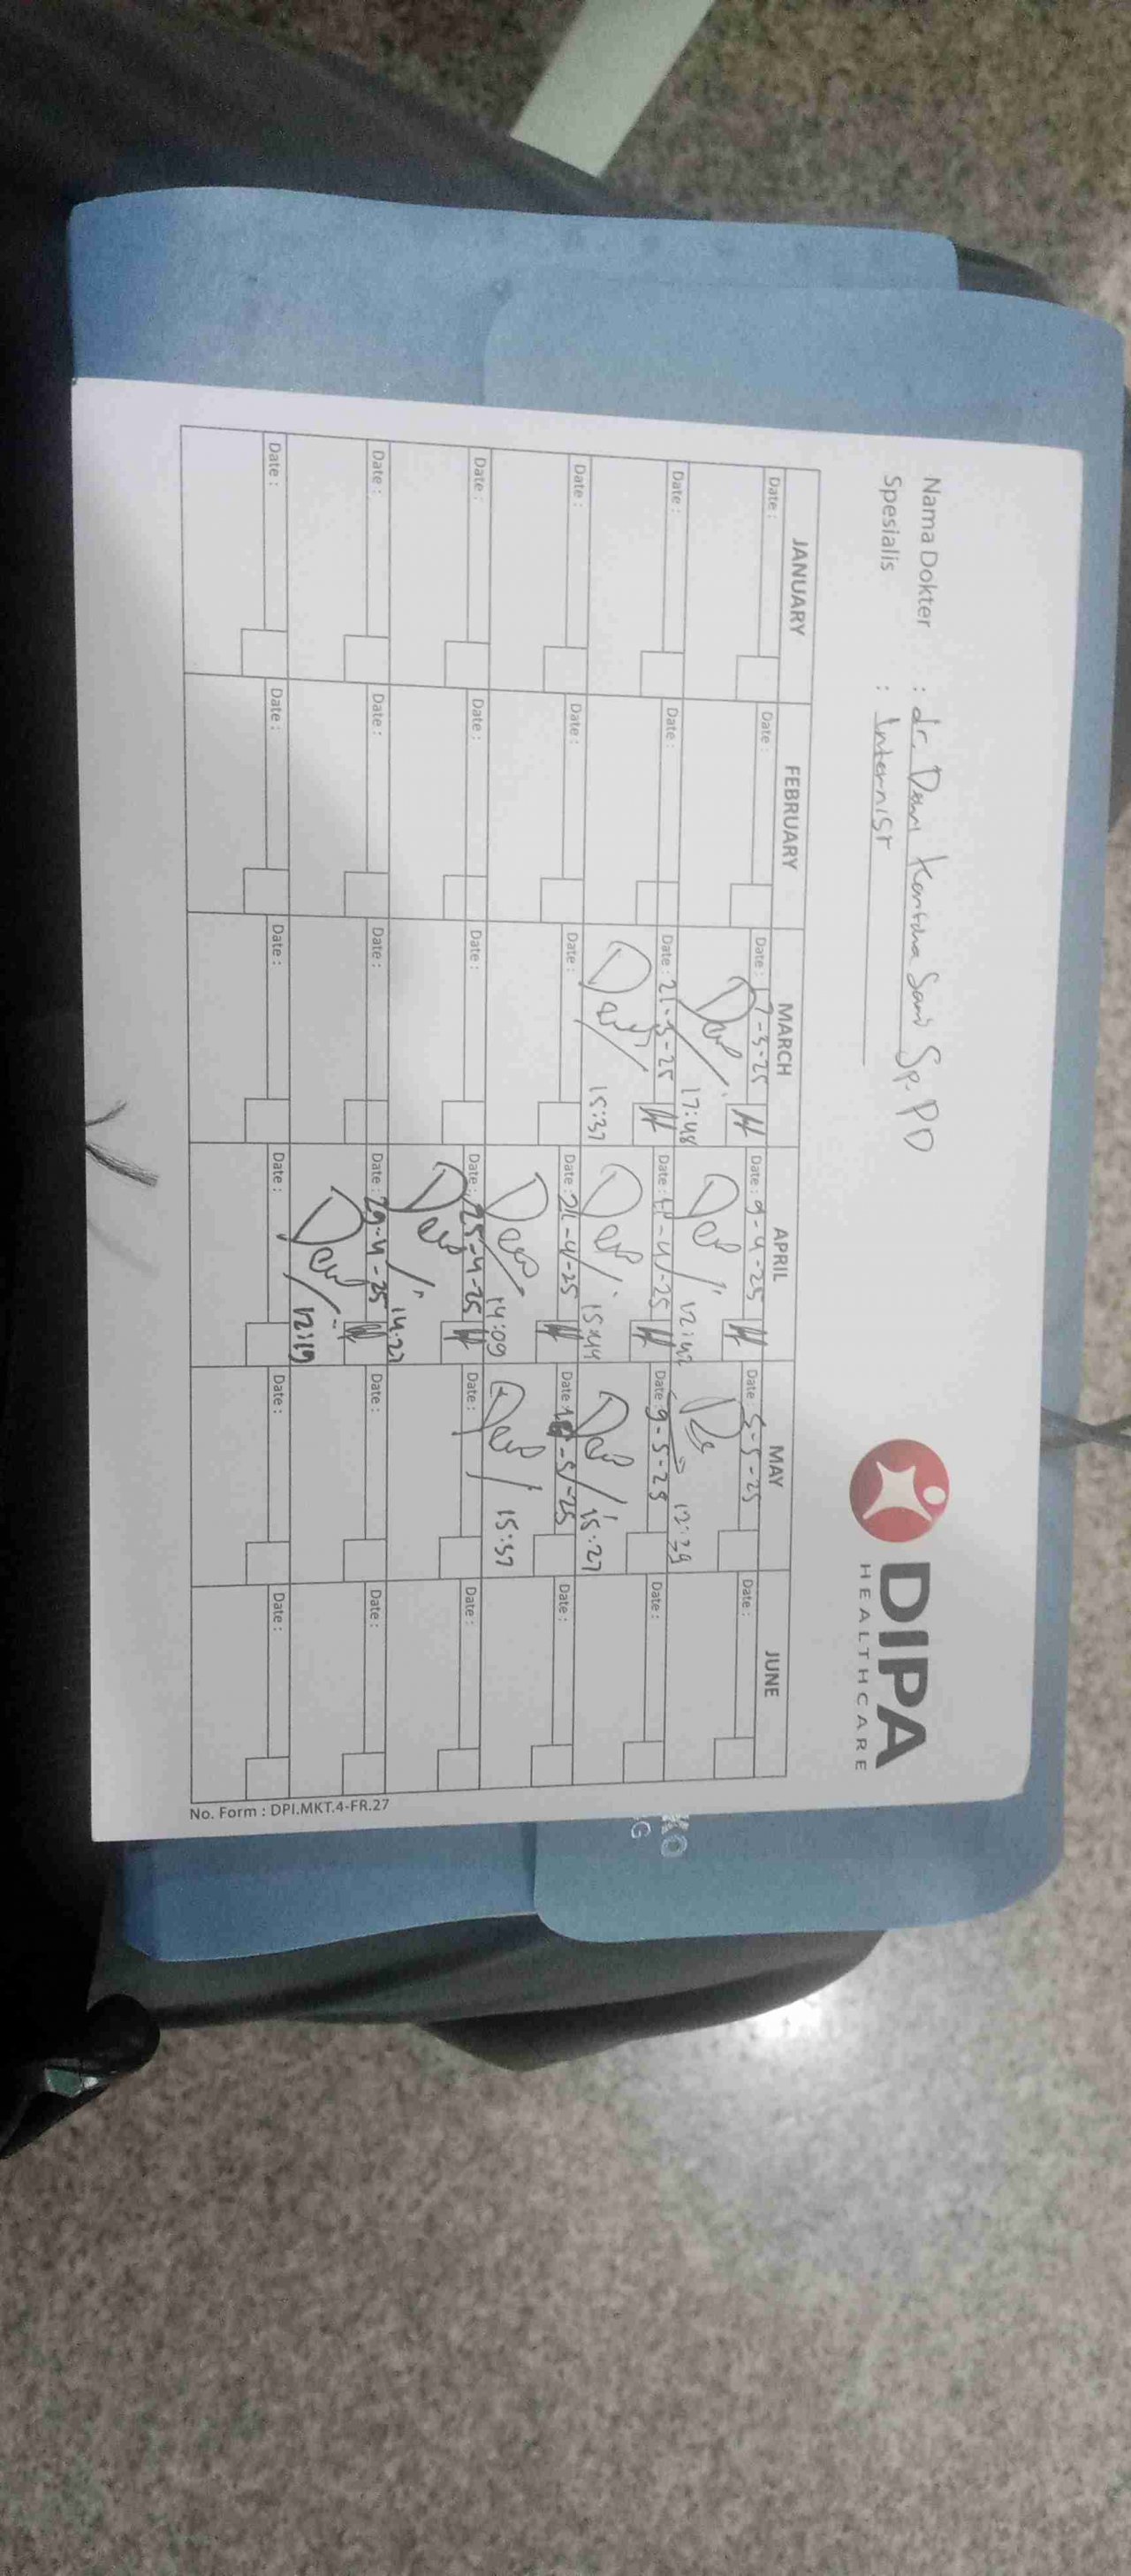 DIPA
HEALTHCARE
Nama Dokter : dr. Sp. PD
Spesialis : Internist
JANUARY FEBRUARY MARCH APRIL MAY JUNE
Date : Date : Date : 17-3-25 Date : 9-4-25 Date : 5-5-25 Date :
17:48 12:42 12:39
Date : Date : Date : 21-3-25 Date : Date : 9-5-25 Date :
15:37 15:44 15:27
Date : Date : Date : Date : Date : Date :
14:09 15:57
Date : Date : Date : Date : 25-4-25 Date : Date :
14:27
Date : Date : Date : Date : 29-4-25 Date : Date :
12:19
Date : Date : Date : Date : Date : Date :
No. Form : DPI.MKT.4-FR.27